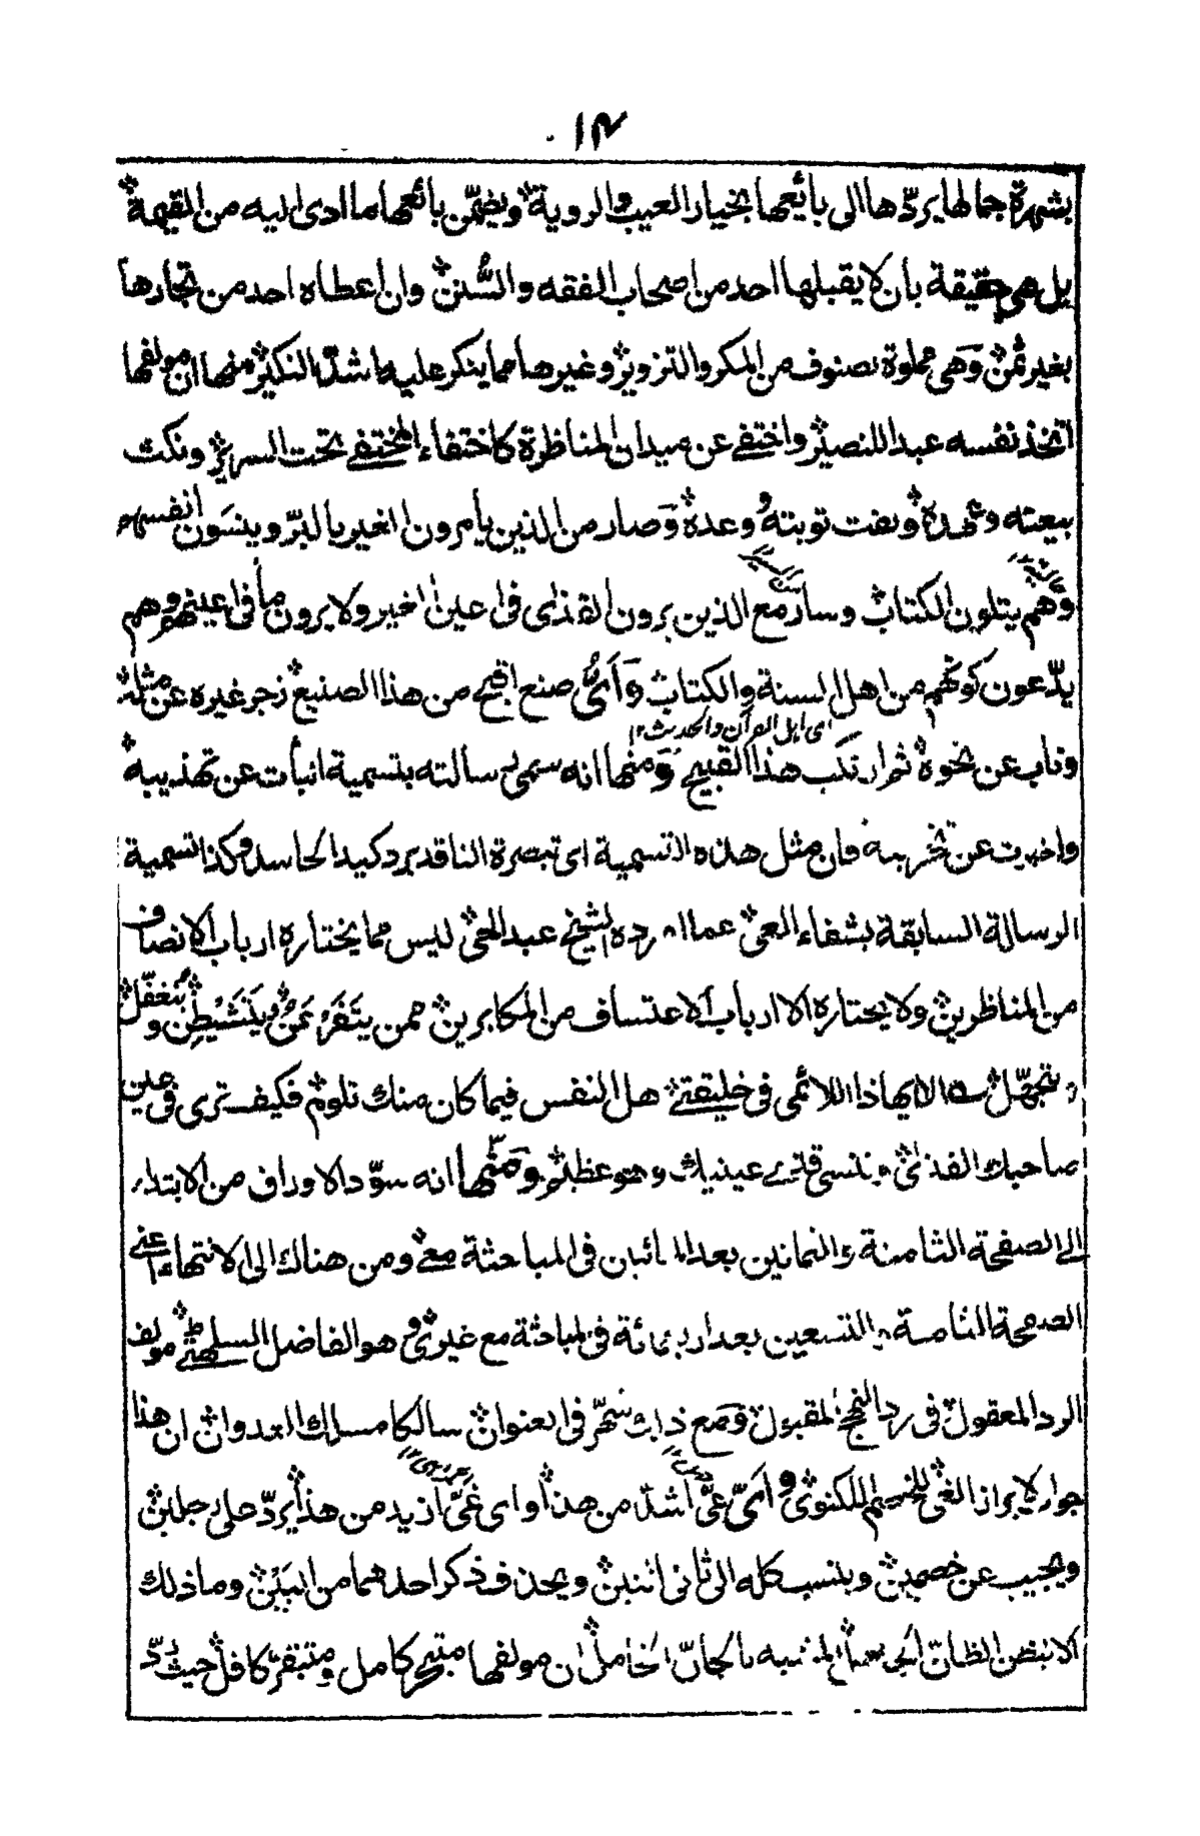 ١٤
بشهرة جمالها يردّها الى بائعها بخيار العيب والروية ويضمّن بائعها ما ادى اليه من القيمة
بل هى حقيقة بأن لا يقبلها احد من اصحاب الفقه والسُّنن وان اعطاه احد من تجارها
بغير ثمن وَهى مملوة بصنوف من المكر والتزوير وغيرها مما ينكر عليه اشدّ النكير منها ان مولفها
اتخذ نفسه عبدا للنصير واختفى عن ميدان المناظرة كاختفاء المختفے تحت السرير ونكث
بيعته وعهده ونفت توبته وعده وَصار من الذين يأمرون الغير بالبرّ وينسَون انفسهم
وَهُم يتلون الكتاب وسار مع الذين يرون القذى فى اعين الغير ولا يرون ما فى اعينهم وهم
يدّعون كونهم من اهل السنة والكتاب وَأىُّ صنع اقبح من هذا الصنيع زجر غيره عن مثله
اى اهل القرآن والحديث ١٢
وناب عن نحوه ثم ارتكب هذا القبيح وَمنها انه سمى رسالته بتسمية انبأت عن تهذيبه
واخبرت عن تخريبه فان مثل هذه التسمية اى تبصرة الناقد برد كيد الحاسد وكذا تسمية
الرسالة السابقة بشفاء العىّ عما اورده الشيخ عبد الحىّ ليس مما يختاره ارباب الانصاف
من المناظرين ولا يختاره الا ارباب الاعتساف من المكابرين ممن يتَفَرعَنُ ويَتَشَيْطِن ويتغفّل
ويتجهّل الا ايهاذا اللائمى فى خليقتے هل النفس فيما كان منك تلوم فكيف ترى فى عين
صاحبك القذى وتنسى قذے عينيك وهو عظيم وَمنها انه سوّد الاوراق من الابتداء
الى الصفحة الثامنة والثمانين بعد المائتين فى المباحثة معے ومن هناك الى الانتهاء اعنے
الصفحة الثامنة والتسعين بعد اربعمائة فى المباحثة مع غيرى وهو الفاضل السلهٹے مولف
الرد المعقول فى رد النهج المقبول وَمع ذلك شهّر فى العنوان سالكا مسالك العدوان ان هذا
جواب لابراز الغى للخصم اللكنوى وأىّ عىٍّ اشدّ من هذا واى غىّ ازيد من هذا يردّ على رجلين
ويجيب عن خصمين وينسب كله الى ثانى اثنين ويحذف ذكر احدهما من البين وما ذلك
مولفها متبحر كامل ومتبقر كافل حيث ردّ